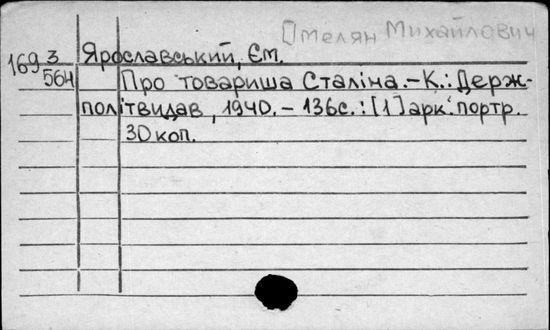 Омелян Михайлович
169 3/564 Ярославський, Єм.
Про товариша Сталіна.-К.: Держ-
політвидав, 1940.-136с.:[1]арк. портр.
30 коп.